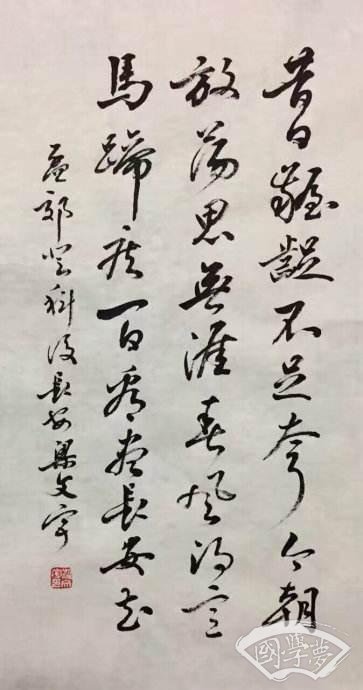 昔日齷齪不足夸今朝
放蕩思無涯春風得意
馬蹄疾一日看盡長安花
孟郊登科後長安梁文
國學夢